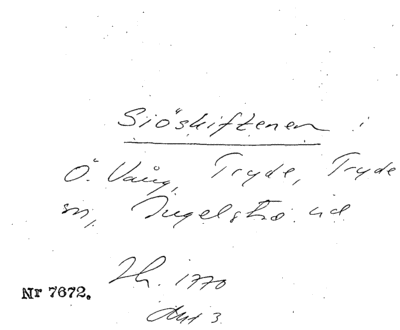 Siöskiftenen i
Ö. Vång, Tryde, Tryde
sn, Ingelsta hd
Th. 1770
Akt 3
Nr 7672.